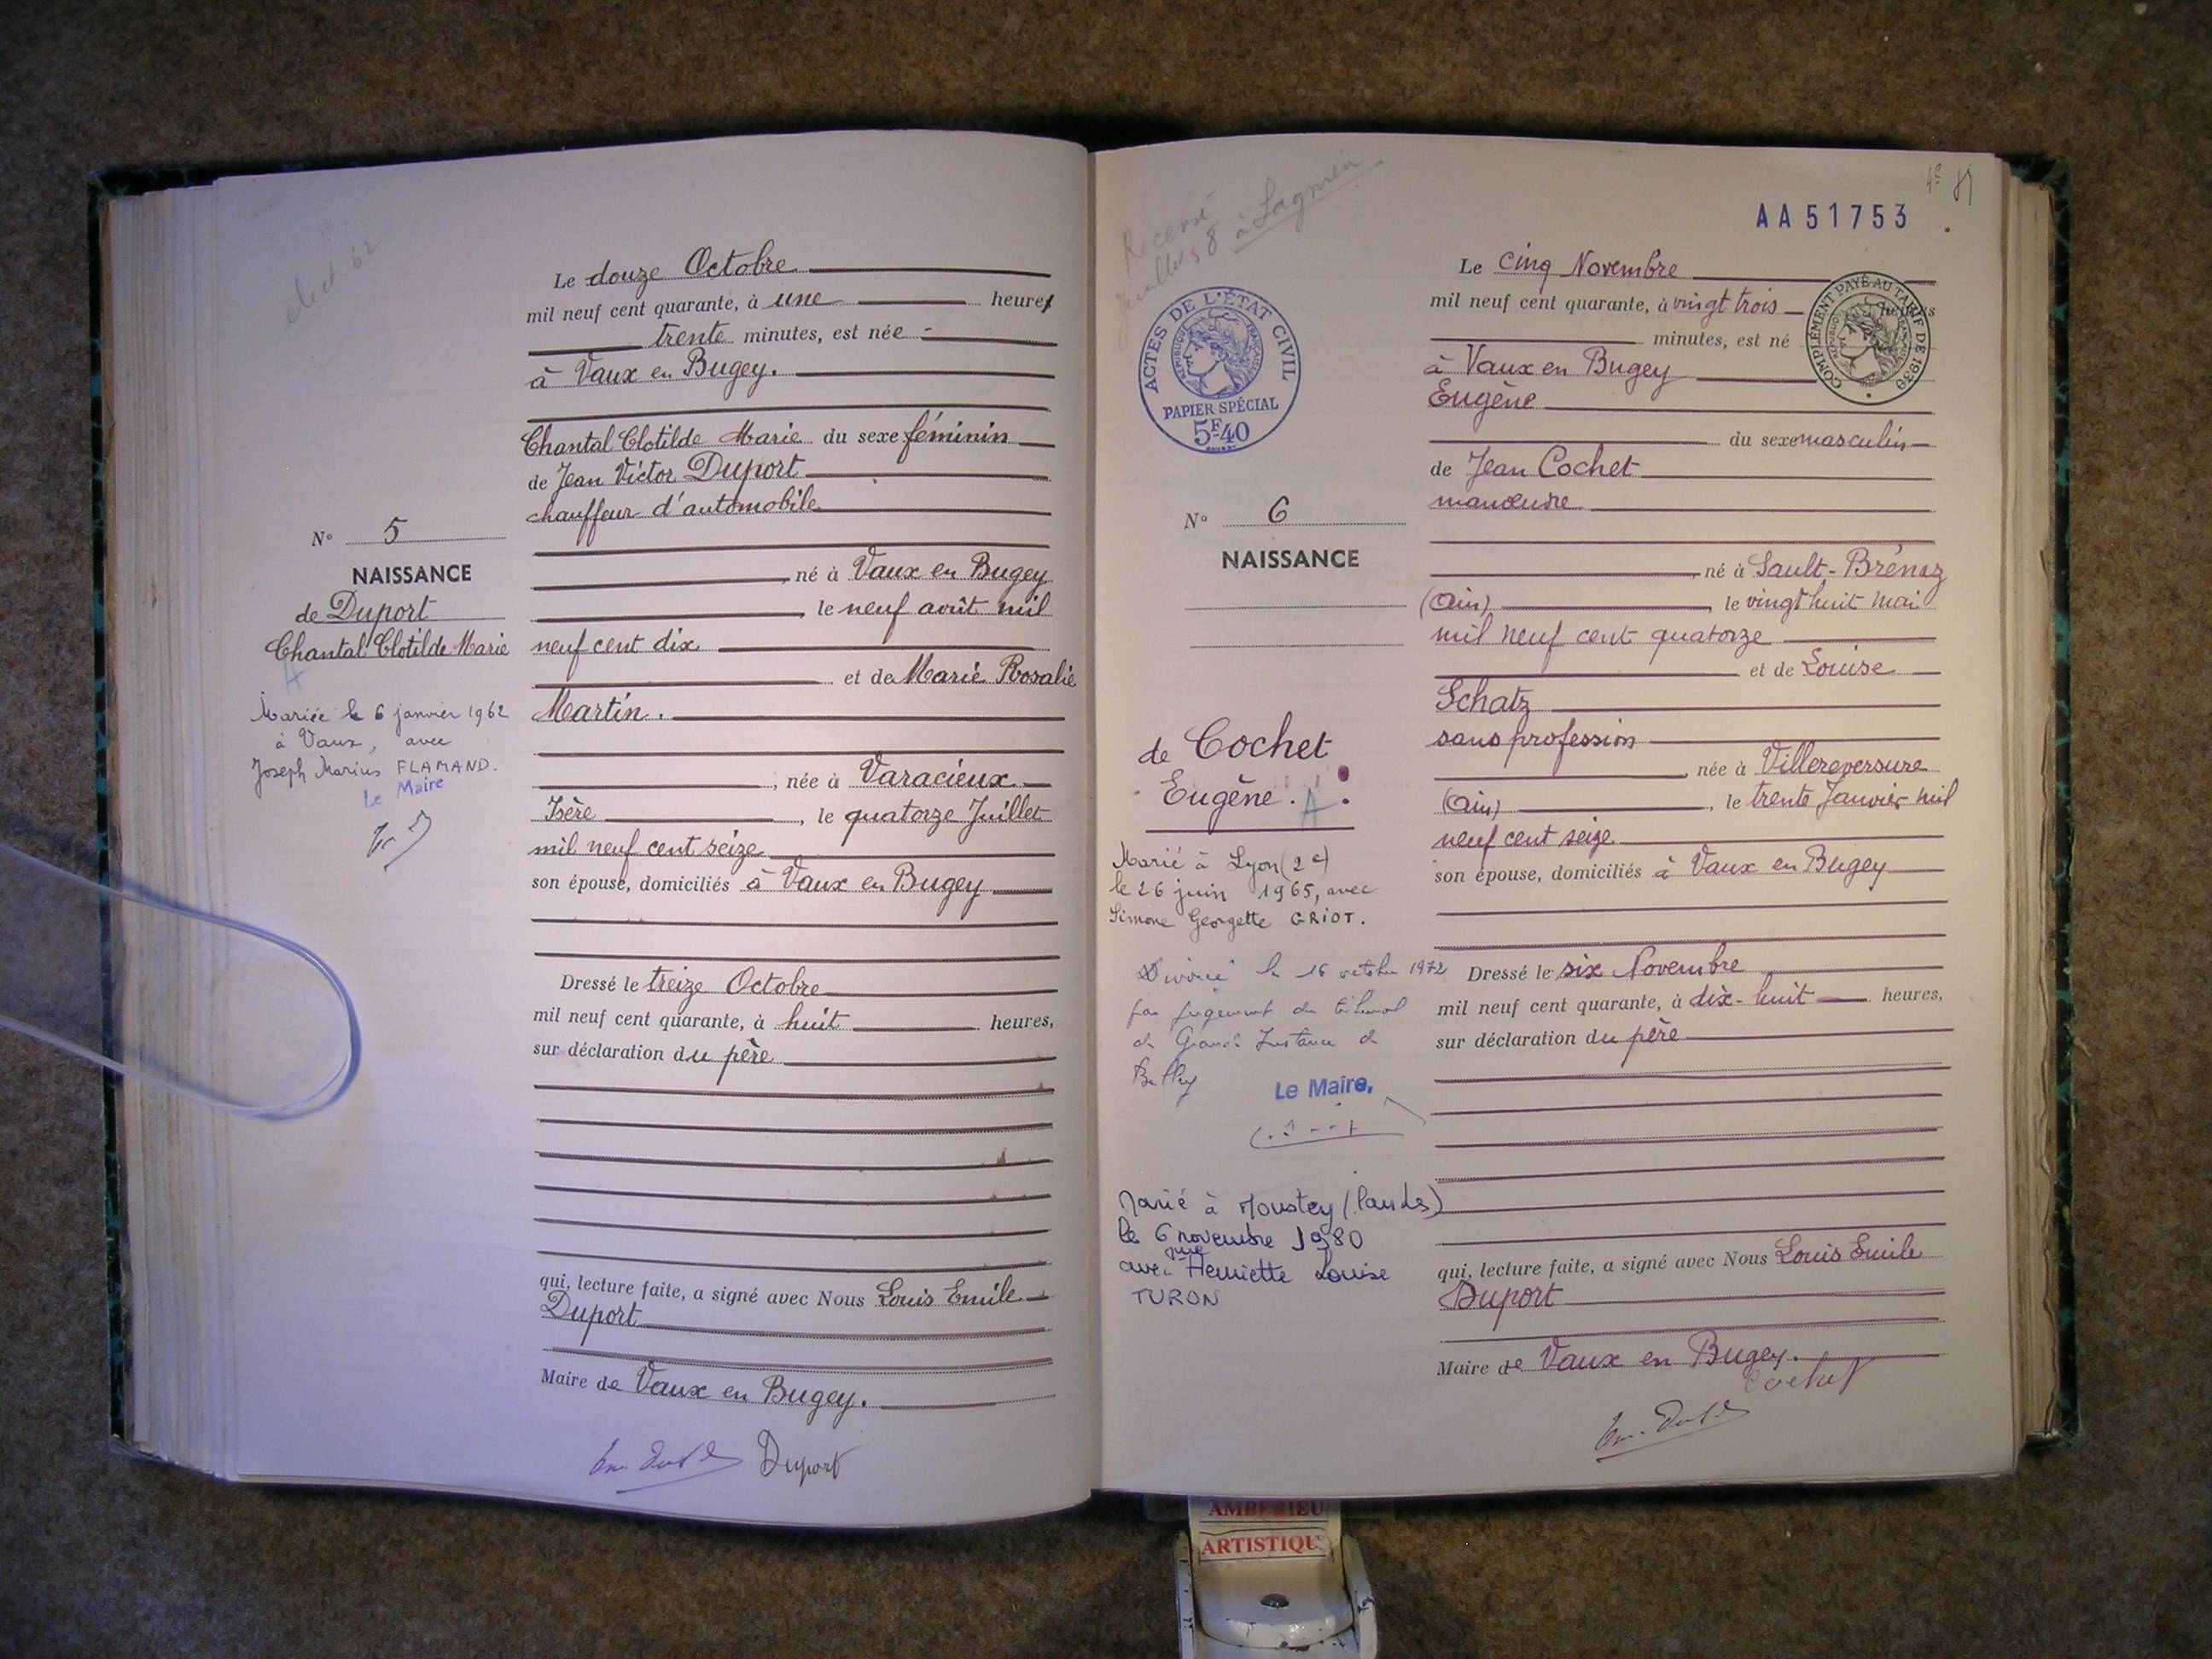 elect. 62
Le douze Octobre
mil neuf cent quarante, à une heure
trente minutes, est née
à Vaux en Bugey.
Chantal Clotilde Marie du sexe féminin
de Jean Victor Duport
chauffeur d'automobile
né à Vaux en Bugey
, le neuf août mil
neuf cent dix
et de Marie Rosalie
Martin.
, née à Varacieux
Isère, le quatorze Juillet
mil neuf cent seize
son épouse, domiciliés à Vaux en Bugey
Dressé le treize Octobre
mil neuf cent quarante, à huit heures,
sur déclaration du père
qui, lecture faite, a signé avec Nous Louis Emile
Duport
Maire de Vaux en Bugey.
Duport
N° 5
NAISSANCE
de Duport
Chantal Clotilde Marie
A
Mariée le 6 janvier 1962
à Vaux, avec
Joseph Marius FLAMAND.
Le Maire
Recensé
à Lagnieu
AA51753
ACTES DE L'ÉTAT CIVIL
RÉPUBLIQUE FRANÇAISE
PAPIER SPÉCIAL
5F40
COMPLÉMENT PAYÉ AU TARIF DE 1939
Le cinq Novembre
mil neuf cent quarante, à vingt trois heures
minutes, est né
à Vaux en Bugey
Eugène
du sexe masculin
de Jean Cochet
manœuvre
, né à Sault-Brénaz
(Ain), le vingt huit Mai
mil neuf cent quatorze
et de Louise
Schatz
sans profession
, née à Villereversure
(Ain), le trente Janvier mil
neuf cent seize
son épouse, domiciliés à Vaux en Bugey
Dressé le six Novembre
mil neuf cent quarante, à dix-huit heures,
sur déclaration du père
qui, lecture faite, a signé avec Nous Louis Emile
Duport
Maire de Vaux en Bugey.
Cochet
N° 6
NAISSANCE
de Cochet
Eugène.
A
Marié à Lyon (2e)
le 26 juin 1965, avec
Simone Georgette GRIOT.
Divorcé le 16 octobre 1972
par jugement du tribunal
de Grande Instance de
Belley
Le Maire,
Marié à Moustey (Landes)
le 6 novembre 1980
avec Henriette Louise
TURON
AMBERIEU
ARTISTIQU